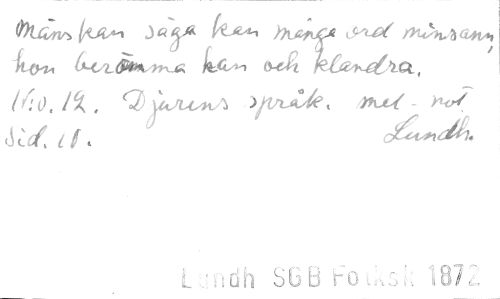 Mänskan säga kan många ord minsann,
hon berömma kan och klandra.
N:o. 12. Djurens språk. mel-not
Sid. 10. Lundh.
Lundh SGB Folksk 1872